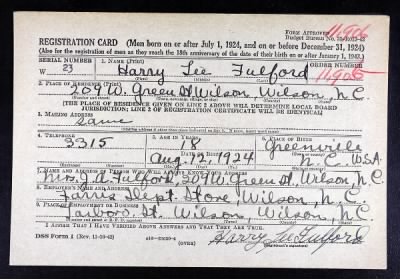 FORM APPROVED
Budget Bureau No.
11906
REGISTRATION CARD (Men born on or after July 1, 1924, and on or before December 31, 1924)
(Also for the registration of men as they reach the 18th anniversary of the date of their birth on or after January 1, 1943.)
SERIAL NUMBER 1. NAME (Print) ORDER NUMBER
W 23 Harry Lee Fulford 11906
2. PLACE OF RESIDENCE (Print)
209 W. Green St Wilson, Wilson, N.C.
[THE PLACE OF RESIDENCE GIVEN ON LINE 2 ABOVE WILL DETERMINE LOCAL BOARD
JURISDICTION; LINE 2 OF REGISTRATION CERTIFICATE WILL BE IDENTICAL]
3. MAILING ADDRESS
same
4. TELEPHONE 5. AGE IN YEARS 6. PLACE OF BIRTH
3315 18 Greenville
DATE OF BIRTH
Aug. 12 1924 N.C. U.S.A.
7. NAME AND ADDRESS OF PERSON WHO WILL ALWAYS KNOW YOUR ADDRESS
Mrs. J. A. Fulford, 209 W. Green St, Wilson, N.C.
8. EMPLOYER'S NAME AND ADDRESS
Dept. Store, Wilson, N.C.
9. PLACE OF EMPLOYMENT OR BUSINESS
Tarboro St. Wilson, Wilson, N.C.
I AFFIRM THAT I HAVE VERIFIED ABOVE ANSWERS AND THAT THEY ARE TRUE.
DSS Form 1 (OVER) Harry Lee Fulford
(Registrant's signature)